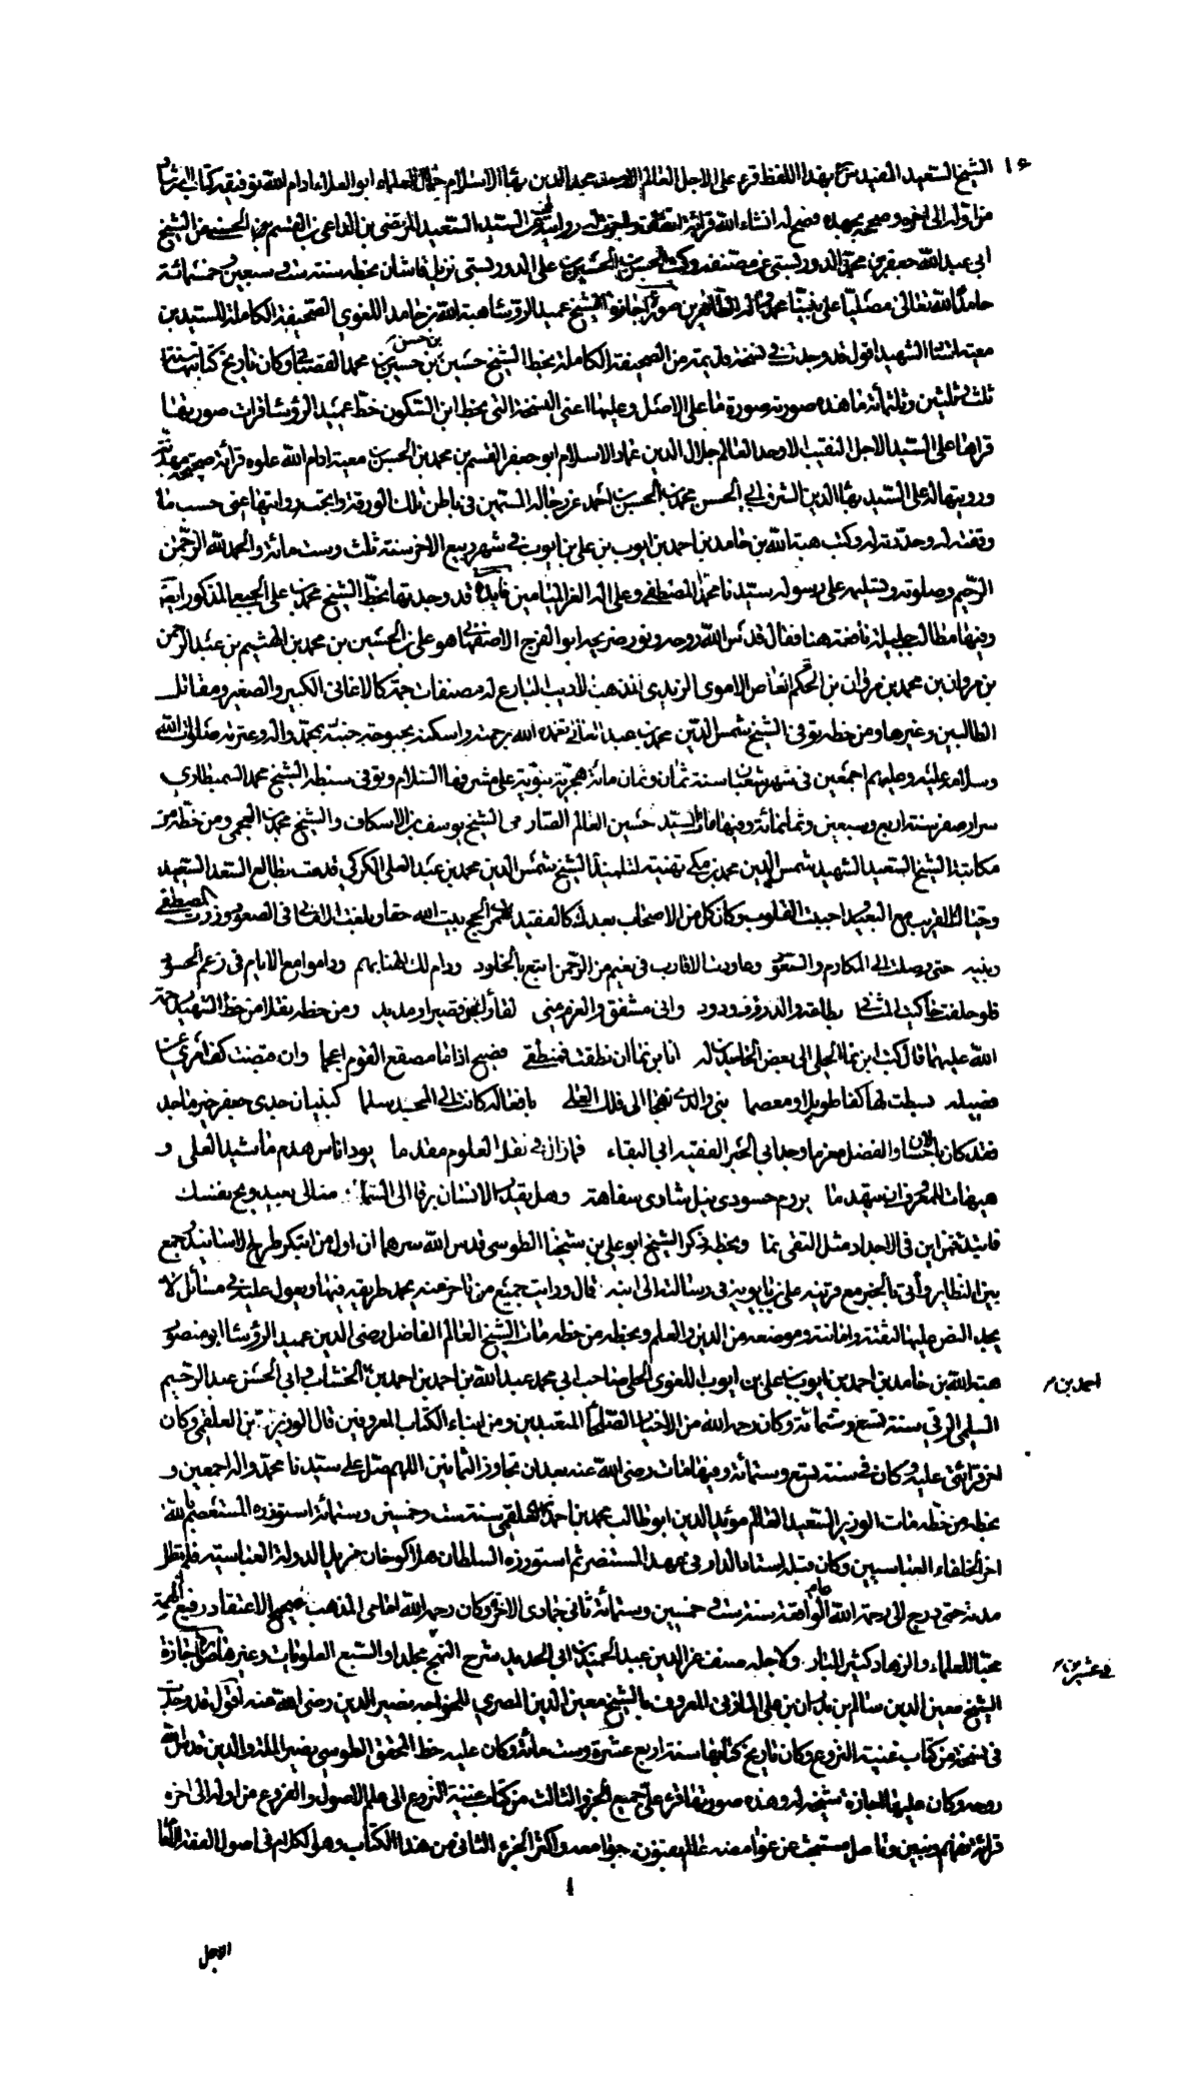 الشيخ السعيد المفيد بهذا اللفظ قرء على الاجل العالم الاوحد مجد الدين بهاء الاسلام جمال العلماء ابو العلاء ادام الله توفيقه كتاب الارشاد
من اوله الى اخره وصححه بجهده فصح له انشاء الله السيد السعيد المرتضى بن الداعى بن القسم الحسنى عن الشيخ
ابى عبد الله جعفر بن محمد الدوريستى عن مصنفه وكتب الحسن بن الحسين بن على الدوريستى نزيل قاشان بخطه سنة ست وسبعين وخمسمائة
حامدا لله تعالى مصليا على نبينا محمد وآله الطاهرين صورة اجازة الشيخ عميد الرؤساء هبة الله بن حامد اللغوى الصحيفة الكاملة للسيد بن
معية الشهيد اقول قد وجدت فى نسخة قديمة من الصحيفة الكاملة بخط الشيخ حسين بن حسين بن حسن محمد وكان تاريخ كتابتها سنة
ثلث وثلثين وثلثمائة ما هذه صورته صورة ما على الاصل وعليها اعنى النسخة التى بخط ابن السكون خط عميد الرؤساء قرائت صورتها
قراها على السيد الاجل النقيب الاوحد العالم جلال الدين عماد الاسلام ابو جعفر القسم بن محمد بن الحسن بن معية ادام الله علوه قرائة صحيحة مهذبة
ورويتها له على السيد بهاء الدين الشرف ابى الحسن محمد بن الحسن بن احمد عن رجاله المسمين فى باطن تلك الورقة وابحته روايتها عنى حسب ما
وقفته له وحددته له وكتب هبة الله بن حامد بن احمد بن ايوب بن على بن ايوب فى شهر ربيع الاخر سنة ثلث وست مائة والحمد لله الرحمن
الرحيم وصلوته وتسليمه على رسوله سيدنا محمد المصطفى وعلى آله الغر الميامين فائدة قد وجدتها بخط الشيخ محمد بن على الجبعى المذكور ايضا
وفيها مطالب جليلة نافعة هنا فقال قدس الله روحه ونور ضريحه ابو الفرج الاصفهانى هو على بن الحسين بن محمد بن الهشيم بن عبد الرحمن
بن مروان بن محمد بن مروان بن الحكم بن العاص الاموى الزيدى المذهب الاديب البارع له مصنفات جمة كالاغانى الكبير والصغير ومقاتل
الطالبين وغيرها ومن خطه توفى الشيخ شمس الدين محمد بن عبد العالى تغمده الله برحمته واسكنه بحبوحة جنته بمحمد وآله وعترته صلوات الله
وسلامه عليه وعليهم اجمعين فى شهر شعبان سنة ثمان وثمان مائة هجرية نبوية على مشرفها السلام وتوفى الشيخ محمد السميطارى
صفر سنة اربع وسبعين وثمانمائة وفيها مات السيد حسين العالم والشيخ يوسف بن الاسكاف والشيخ محمد بن العجمى ومن خطه من
مكاتبة الشيخ السعيد الشهيد شمس الدين محمد بن مكى تهنية لتلميذه الشيخ شمس الدين محمد بن عبد العلى الكركى قدمت بطالع السعد السعيد
وحياك القريب مع البعيد احببت القلوب وكان كل من الاصحاب بعدك كالفقيد الحج بيت الله حقا وبلغت امالى فى الصعود وزرت المصطفى
وبنيه حتى وصلت الى المكارم والسعود وعاودت الاقارب فى نعيم من الرحمن اتبع بالخلود ودام لك الهنا بهم وداموا مع الايام فى رغم الحسود
فلو حلفت خاكيت المثنى وانى مشفق والعزم منى لقاؤك وقصير او مديد ومن خطه نقلا من خط الشهيد رحمة
الله عليهما قال كتب ابن نما الحلى الى بعض الحاسدين له انا بن نما ان نطقت فمنطقى فصيح اذا ما مصقع القوم اعجما وان قبضت كف
فضيلة بسطت لها كفا طويلا ومعصما بنى والدى نهجا الى ذلك العلى بافعاله كانت الى المجد سلما كبنيان جدى جعفر خير ماجد
فقد كان بالاحسان والفضل مغرما وجد ابى الحبر الفقيه ابى البقاء فما زال فى نقل العلوم مقدما يود اناس هدم ما شيد العلى و
هيهات للمعروف ان يتهدما يروم حسودى نيل شاوى سفاهة وهل يقدر الانسان يرقى الى السما منالى بعيد ويح نفسك
فاتئد فمن اين فى الاجداد مثل التقى نما وبخطه ذكر الشيخ ابو على بن شيخنا الطوسى قدس الله سرهما ان اول من ابتكر طرح الاسانيد وجمع
بين النظاير وأتى بالخبر مع قرينه على بن بابويه فى رسالته الى ابنه قال ورايت جميع من تاخر عنه يحمد طريقه فيها ويعول عليه فى مسائل لا
يجد النص عليها لثقته وامانته وموضعه من الدين والعلم وبخطه من خطه مات الشيخ العالم الفاضل رضى الدين عميد الرؤساء ابو منصور
هبة الله بن حامد بن احمد بن ايوب بن على بن ايوب اللغوى الحلى صاحب ابى محمد عبد الله بن احمد بن احمد بن الخشاب وابى الحسن عبد الرحيم
احمد بن
السلمى الرقى سنة تسع وستمائة وكان رحمه الله من الاخيار الصلحاء المتعبدين ومن ابناء الكتاب المعروفين قال الوزير بن العلقمى وكان
اخر قرائتى عليه وكان فى سنة تسع وستمائة وفيها مات رضى الله عنه بعد ان تجاوز الثمانين اللهم صل على سيدنا محمد وآله اجمعين و
بخطه من خطه مات الوزير السعيد العالم مؤيد الدين ابو طالب محمد بن احمد العلقمى سنة ست وخمسين وستمائة استوزره المستعصم بالله
اخر الخلفاء العباسيين وكان قبله استاد الدار فى عهد المستنصر ثم استوزره السلطان هلاكو خان مزيل الدولة العباسية فلم تطل
مدته حتى درج الى رحمة الله عام الواقعة سنة ست وخمسين وستمائة ثانى جمادى الاخر وكان رحمه الله امامى المذهب صحيح الاعتقاد رفيع الهمة
محبا للعلماء والزهاد كثير المبار ولاجله صنف عز الدين عبد الحميد بن ابى الحديد شرح النهج مجلدا والسبع العلويات وغيرها صورة اجازة
فى عشرين
الشيخ معين الدين سالم بن بدران بن على المازنى المعروف بالشيخ معين الدين المصرى للخواجه نصير الدين رضى الله عنه اقول قد وجدت
فى نسخة من كتاب غنية النزوع وكان تاريخ كتابتها سنة اربع عشرة وست مائة وكان عليه خط المحقق الطوسى نصير الملة والدين قدس الله
روحه وكان عليها اجازة شيخه له وهذه صورتها قرء على جميع الجزو الثالث من كتاب غنية النزوع الى علم الاصول والفروع من اوله الى اخره
قرائة تفهم وتبين وتامل مستبحث عن غوامضه عالم بفنون جوامعه واكثر الجزء الثانى من هذا الكتاب وهو الكلام فى اصول الفقه الامام
الاجل